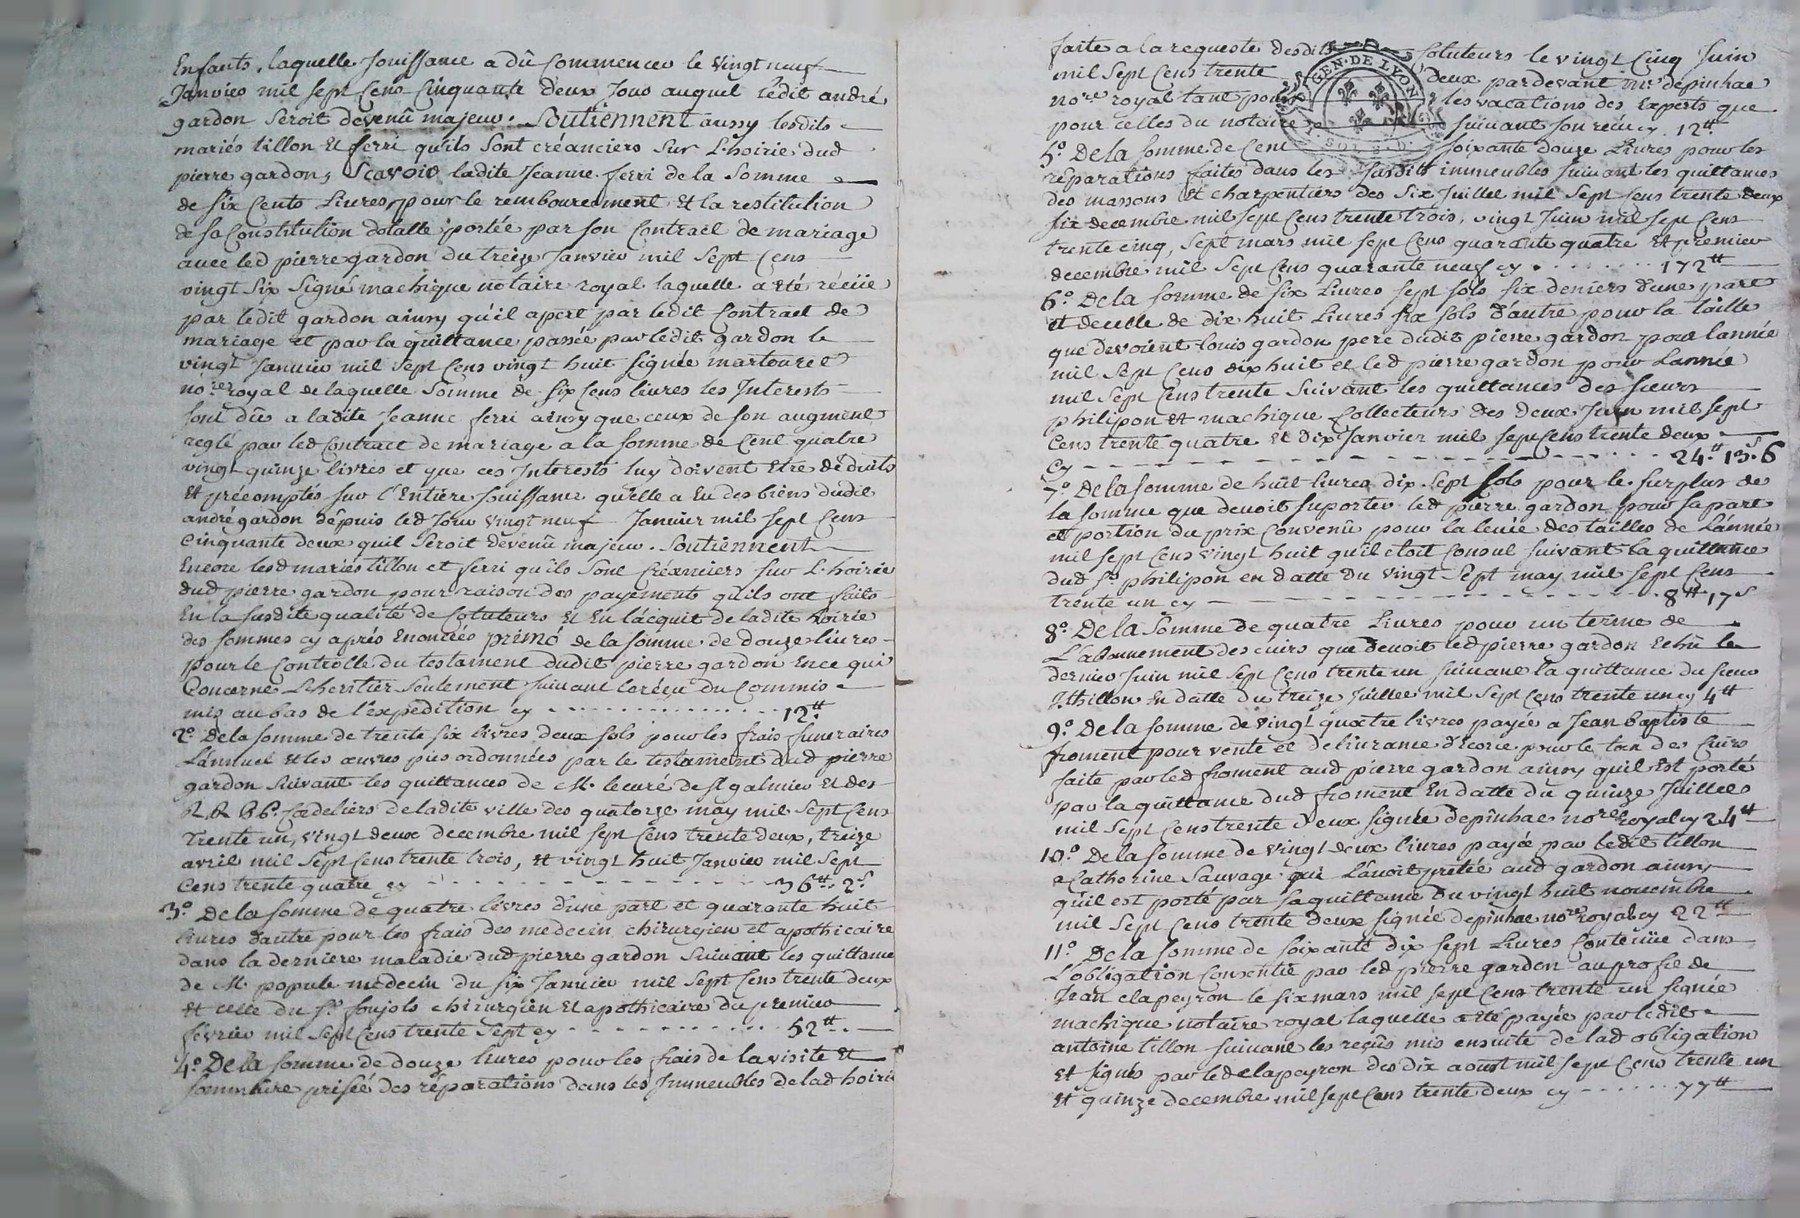 Enfants, laquelle Jouissance a dû Commencer le Vingt neuf
Janvier mil sept Cens Cinquante deux Jour auquel ledit andré
gardon Seroit devenû majeur. Soutiennent aussy lesdits
mariés tillon et ferri qu'ils Sont créanciers Sur L'hoirie dud
pierre gardon, Scavoir ladite Jeanne ferri de la Somme
de Six Cents Livres, pour le remboursement et la restitution
de sa Constitution dotalle portée par son Contract de mariage
avec led pierre gardon du treize Janvier mil Sept Cens
vingt Six Signé machique notaire royal laquelle a été recüe
par ledit gardon ainsy qu'il apert par ledit Contract de
mariage et par la quittance passée par ledit gardon le
vingt Janvier mil Sept Cens vingt huit signée martouret
nore royal de laquelle Somme de Six Cens livres les Interests
Sont dûs a ladite Jeanne ferri ainsy que ceux de son augment
reglé par led Contract de mariage a la Somme de Cent quatre
vingt quinze livres et que ces Interests luy doivent Etre déduits
et précomptés sur l'Entière Jouissance qu'elle a Eu des biens dudit
andré gardon dépuis led Jour vingt neuf Janvier mil Sept Cens
Cinquante deux quil Seroit devenû majeur. Soutiennent
Encore lesd mariés tillon et ferri qu'ils Sont Créanciers sur L'hoirie
dud pierre gardon pour raison des payements qu'ils ont faits
En la Susdite qualité de Cotuteurs et En l'acquit de ladite hoirie
des Sommes cy après Enoncées primò de la Somme de douze livres
pour le Controlle du testament dudit pierre gardon En ce qui
Concerne L'heritier Seulement Suivant le reçu du Commis
mis au bas de l'expedition cy - - - - - 12tt
2o. De la Somme de trente Six livres deux Sols pour les frais funeraires
L'annuel et les œuvres pies ordonnées par le testament dud pierre
gardon Suivant les quittances de Mr. le curé de St galmier et des
R.R. P.P. Cordeliers de ladite ville des quatorze may mil Sept Cens
Trente un, vingt deux decembre mil Sept Cens trente deux, treize
avril mil Sept Cens trente trois, et vingt huit Janvier mil Sept
Cens trente quatre cy - - - - - 36tt. 2s
3o. De la Somme de quatre livres d'une part et quarante huit
livres d'autre pour les frais des medecin, chirurgien et apothicaire
dans la derniere maladie dud pierre gardon Suivant les quittance
de Mr. popule medecin du Six Janvier mil Sept Cens trente deux
et celle du Sr. Soujols chirurgien et apothicaire du premier
février mil Sept Cens trente Sept cy - - - - - 52tt.
4o. De la Somme de douze livres pour les frais de la visite et
Sommaire prisée des réparations dans les Immeubles de lad hoirie
faite a la requeste desdits Cotuteurs le vingt Cinq Juin
mil Sept Cens trente deux pardevant Mr. depinhac
nore royal tant pour les vacations des Experts que
pour celles du notaire Suivant son reçu cy. 12tt
GEN. DE LYON
5o. De la Somme de Cent soixante douze Livres pour les
réparations faites dans les Susdits immeubles Suivant les quittances
des massons et charpentiers des Six Juillet mil Sept Cens trente deux
Six decembre mil Sept Cens trente trois, vingt Juin mil Sept Cens
trente cinq, Sept mars mil Sept Cens quarante quatre et premier
decembre mil Sept Cens quarante neuf cy - - - - - 172tt
6o. De la Somme de Six Livres Sept Sols Six deniers d'une part
et de celle de dix huit Livres Six Sols d'autre pour la taille
que devoient louis gardon pere dudit pierre gardon pour l'année
mil Sept Cens dix huit et led pierre gardon pour L'année
mil Sept Cens trente Suivant les quittances des Sieurs
philipon et machique Collecteurs des deux Juin mil Sept
Cens trente quatre et dix Janvier mil Sept Cens trente deux
Cy - - - - - 24tt. 13s. 6
7o. De la Somme de huit livres dix Sept Sols pour le Surplus de
la Somme que devoit Suporter led pierre gardon pour sa part
et portion du prix Convenû pour la levée des tailles de L'année
mil Sept Cens vingt huit qu'il etoit Consul Suivant la quittance
dud Sr. philipon en datte du vingt Sept may mil Sept Cens
trente un cy - - - - - 8tt 17s
8o. De la Somme de quatre Livres pour un terme de
L'abonnement des cuirs que devoit led pierre gardon Echû le
dernier Juin mil Sept Cens trente un Suivant la quittance du Sieur
Thillon En datte du treize Juillet mil Sept Cens trente un cy 4tt
9o. De la Somme de vingt quatre livres payée a Jean baptiste
froment pour vente et delivrance d'Ecorce pour le tan des Cuirs
faite par led froment aud pierre gardon ainsy quil est porté
par la quittance dud froment En datte du quinze Juillet
mil Sept Cens trente deux signée depinhac nore royal cy 24tt
10o. De la Somme de vingt deux livres payée par ledit tillon
a Catherine Sauvage qui L'avoit prêtée aud gardon ainsy
qu'il est porté par sa quittance du vingt huit novembre
mil Sept Cens trente deux signée depinhac nore royal cy 22tt
11o. De la Somme de Soixante dix Sept Livres Contenüe dans
L'obligation Consentie par led pierre gardon au profit de
Jean clapeyron le six mars mil Sept Cens trente un signée
machique notaire royal laquelle a été payée par ledit
antoine tillon Suivant les reçûs mis ensuite de lad obligation
et signés par led clapeyron des dix aoust mil Sept Cens trente un
et quinze decembre mil Sept Cens trente deux cy - - - - - 77tt